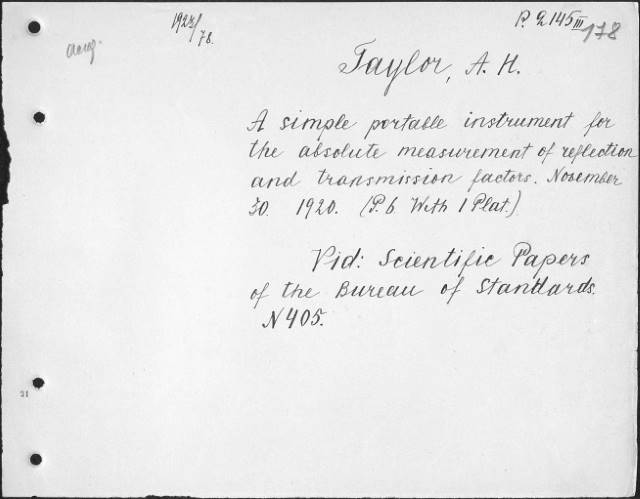 1927/78.
P. 2145 III
178
ang.
Taylor, A. H.
A simple portable instrument for
the absolute measurement of reflection
and transmission factors. November
30. 1920. (P. 6 With 1 Plat.)
Vid: Scientific Papers
of the Bureau of Standards.
N 405.
21